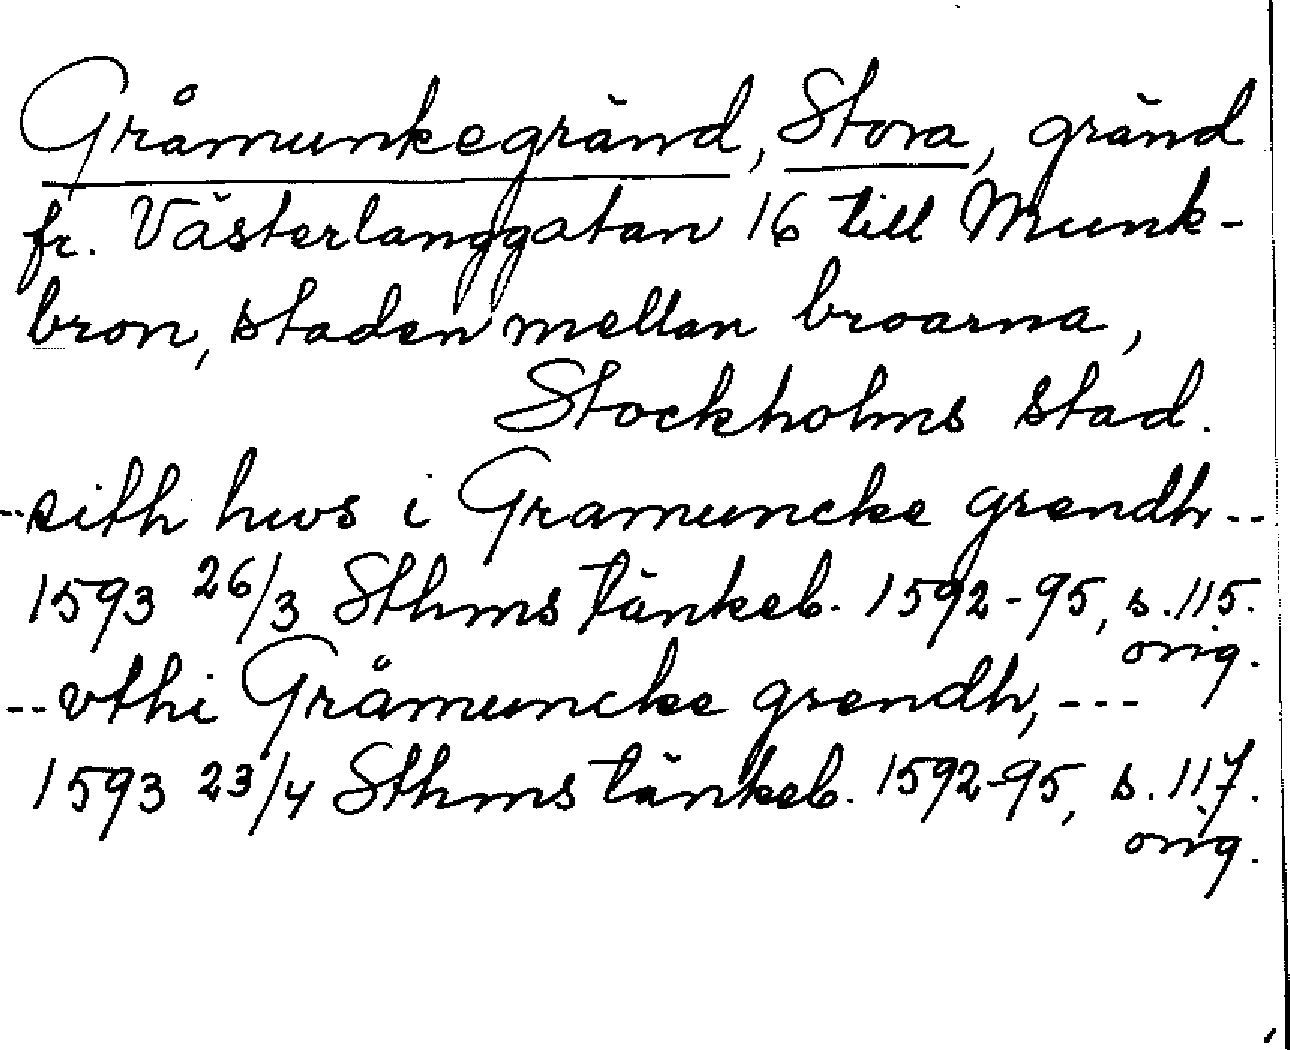 Gråmunkegränd, Stora, gränd
fr. Västerlanggatan 16 till Munk-
bron, staden mellan broarna,
Stockholms stad.
--sith hws i Gramuncke grendh--
1593 26/3 Sthms tänkeb. 1592-95, s. 115.
orig.
--vthi Gråmuncke grendh, ---
1593 23/4 Sthms tänkeb. 1592-95, s. 117.
orig.